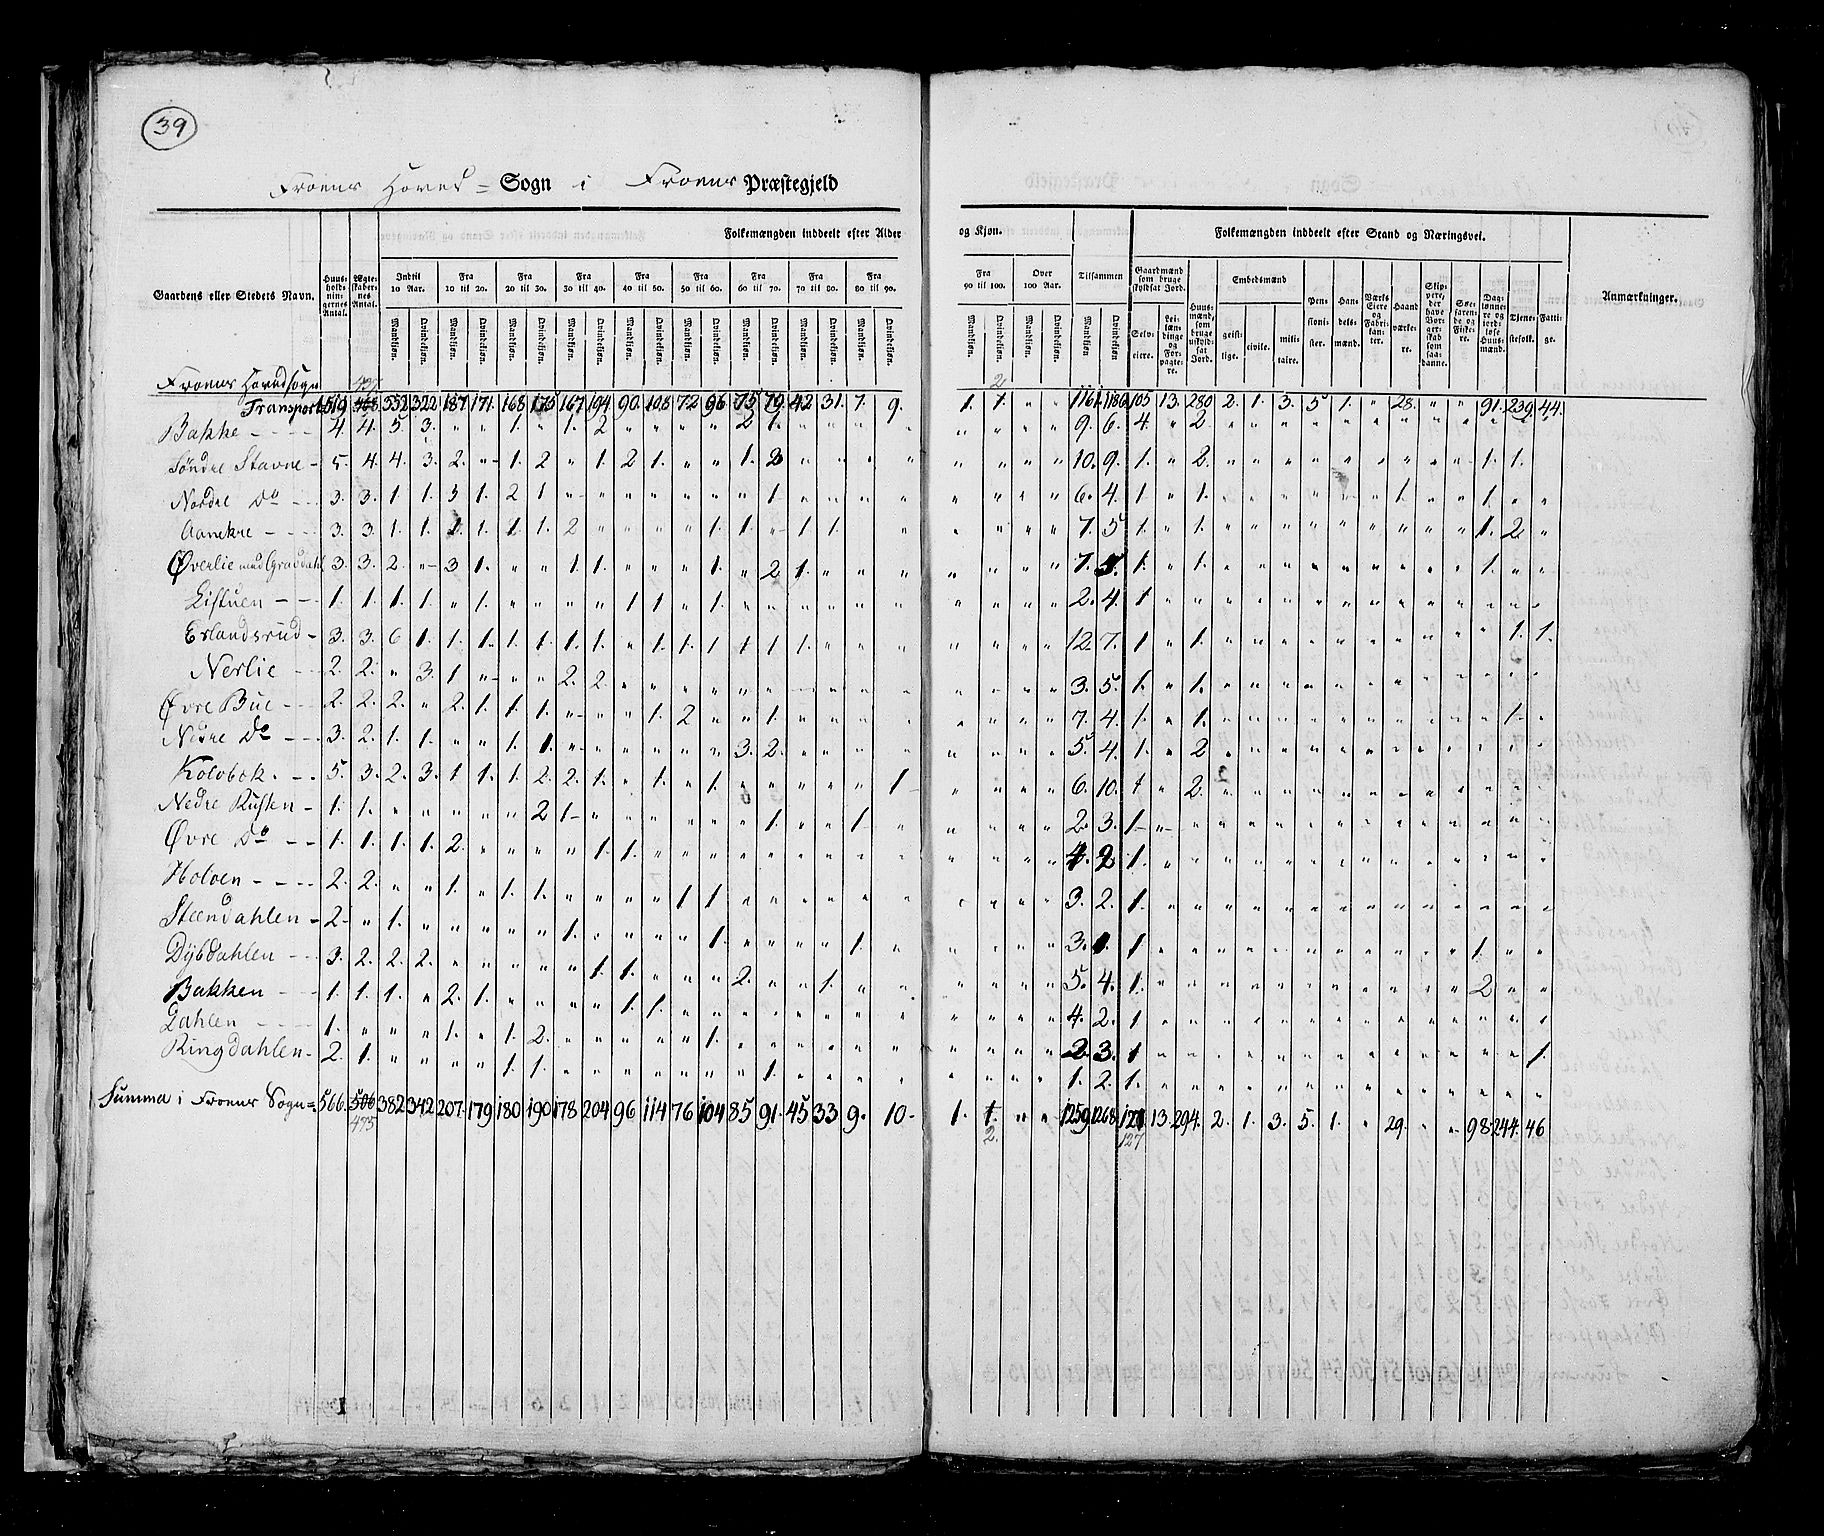 39
Froens Hoved= Sogn i Froens Præstegjeld
Gaardens eller Stedets Navn. | Huusholdningernes Antal. | Ægteskabernes Antal. | Folkemængden inddeelt efter Alder og Kjøn. | Folkemængden inddeelt efter Stand og Næringsvei. | Anmærkninger.
Indtil 10 Aar. | Fra 10 til 20. | Fra 20 til 30. | Fra 30 til 40. | Fra 40 til 50. | Fra 50 til 60. | Fra 60 til 70. | Fra 70 til 80. | Fra 80 til 90. | Fra 90 til 100. | Over 100 Aar. | Tilsammen | Gaardmænd som bruge skyldsat Jord. | Huusmænd, som bruge uskyldsat Jord. | Embedsmænd | Pensionister. | Handelsmænd. | Værks Eiere og Fabrikanter. | Haandværkere. | Skippere, der have Borgerskab som saadanne. | Søefarende og Fiskere. | Daglønnere og jordløse Huusmænd. | Tjenestefolk. | Fattige.
Mandkjøn. | Qvindekjøn. | Selveiere. | Leilændinge og Forpagtere. | geistlige. | civile. | militaire.
Froens Hovedsogn
Transport 519 468 352 322 187 171. 168 175 167 194 90. 108 72 96 75 79. 42 31. 7. 9. 1. 1. " " 1161. 1186 105 13. 280 2. 1. 3. 5 1. " 28. " " 91. 239. 44.
2
Bakke 4. 4. 5. 3. " " 1. " 1. 2 " " " " 2 1. " " " " " " " " 9. 6. 4. " 2.
Søndre Stavne 5. 4. 4. 3. 2. " 1. 2 " 1. 2 1. " " 1. 2 " " " " " " " " 10. 9. 1. " 2. 1. 1.
Nordre Do 3. 3. 1 1. 3 1. 2 1 " " " " " " " 1. " " " " " " " " 6. 4. 1. " 1. 1. 1.
Aanekre 3. 3. 1. 1. 1. 1. 1. 1. 2 " " " " 1. 1. " 1. 1. " " " " " " 7. 5 1. " 1. 1. 2.
Øverlie med Gravdahl 3. 3. 2. " 3 1. " " 1 1. " " " 1. " 2 1. " " " " " " " 7. 5. 1. " 1. 1.
Listuen 1. 1. 1. 1. " 1. " " " " 1 1. " 1. " " " " " " " " " " 2. 4. 1
Erlandsrud 3. 3. 6 1. 1. 1. 1. 1. 1. 1. " 1. 1. 1. 1 1. 1. " " " " " " " 12. 7. 1 " 1. 1. 1.
Nerlie 2. 2. " 3. 1 " " " 2. 2. " " " " " " " " " " " " " " 3. 5. 1. " 1.
Øvre Bue 2. 2. 2. " 2. 1. 1. 1. " " " 1. 2 " " 1. " " " " " " " " 7. 4. 1. " 1. 1.
Nedre Do 3. 2. 1. 1. " " 1. 1. " " " " " " 3. 2. " " " " " " " " 5. 4. 1. " 2
Kolobok 5. 3. 2. 3. 1 1. 1. 2. 2. 1. " 1. " 1. " " " " " 1 " " " " 6. 10. 1 " 2.
Nedre Rusten 1. 1. " " " " " 2 1 " " " " " " 1. " " 1 " " " " " 2. 3. 1
Øvre Do 1. 1. 1. 1. 2. " " " " 1. 1. " " " " " " " " " " " " " 4. 2 1.
Holoen 2. 2. " " 1. " 1. 1. " " " " 1 1. " " " " " " " " " " 3. 2. 1.
Steendahlen 2. " 1. " " " " " 1. " " " " 1. " " " " 1. " " " " " 3. 1. 1 1.
Dybdahlen 3. 2. 2. 2. " " " " " 1. 1. " " " 2. " " 1. " " " " " " 5. 4. 1. 2
Bakken 1. 1. 1. " 2. 1. " " " " 1. 1. " " " " " " " " " " " " 4. 2. 1
Dahlen 1. " " " 1. " 1. 2. " " " " " 1. " " " " " " " " " " 2 3. 1 1.
Ringdahlen 2. 1. " " " " 1. 1. " " " " " " " 1. " " " " " " " " 1. 2. 1.
Summa i Froens Sogn= 566. 506 382 342 207. 179 180 190 178. 204 96 114 76 104 85. 91. 45 33 9. 10. 1. 1. " " 1259 1268 121 13. 294. 2. 1. 3. 5. 1. " 29. " " 98. 244. 46
475 2. 127